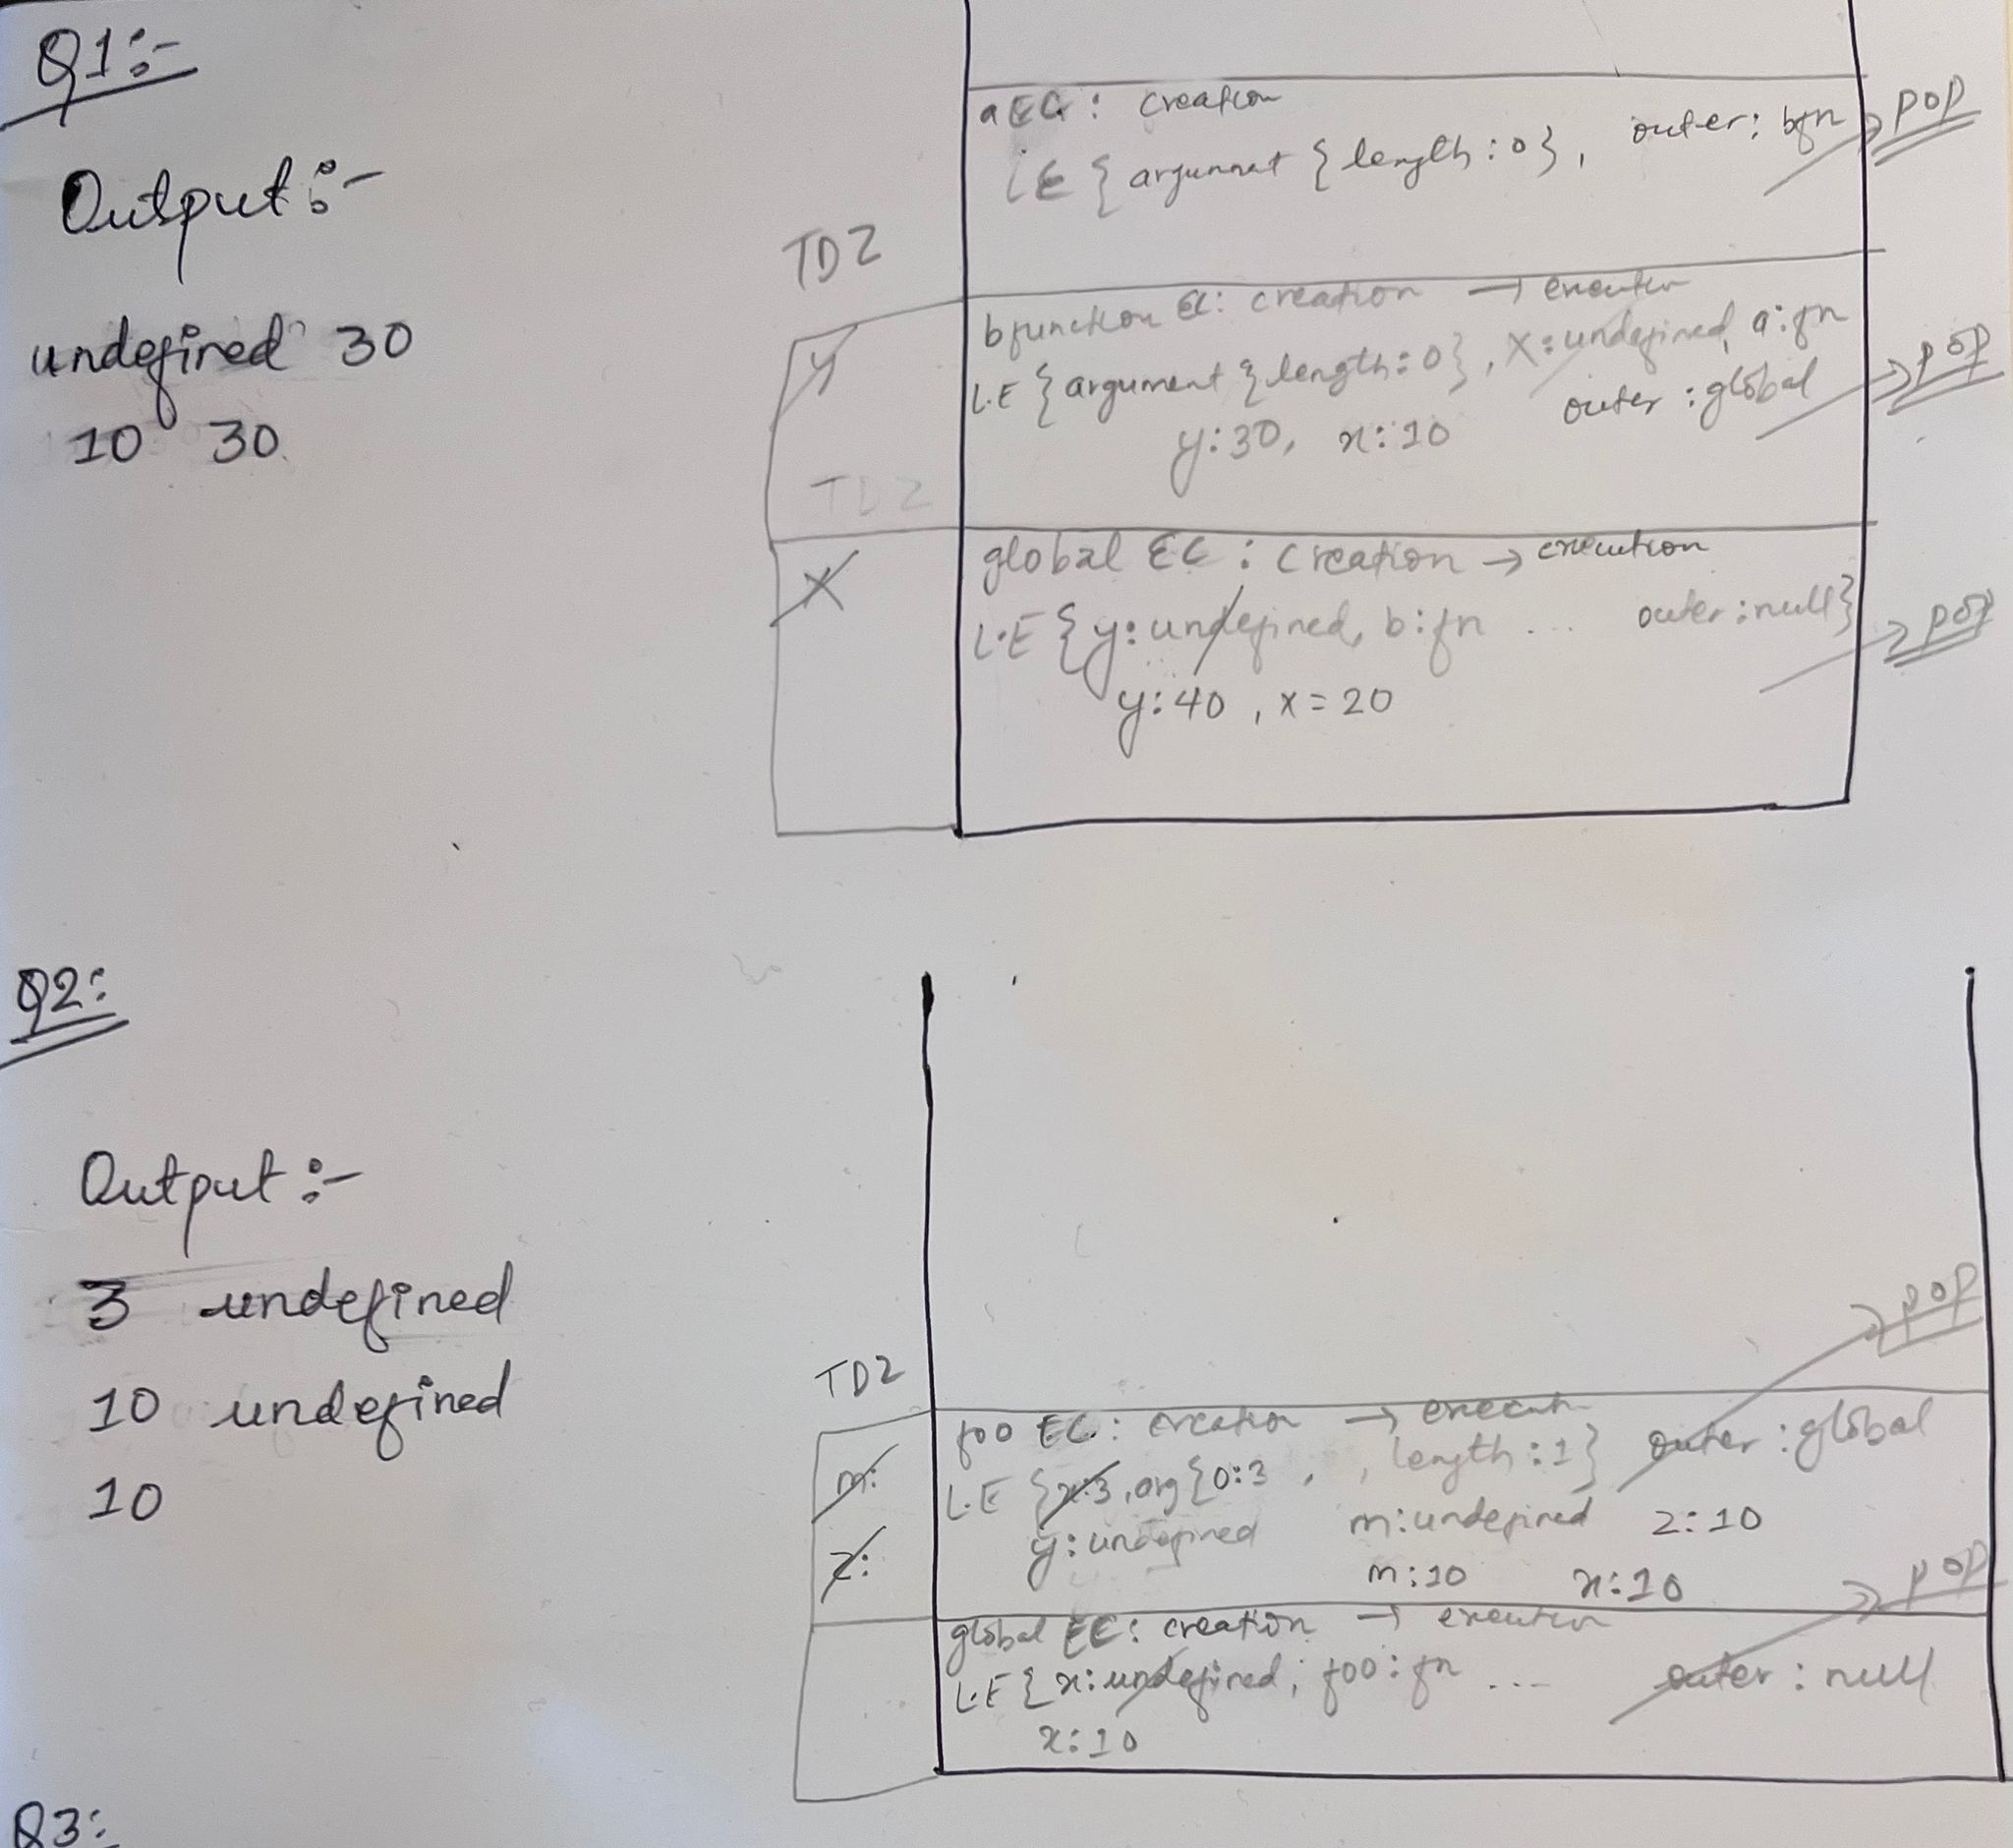 Q1:-
Output:-
undefined 30
10 30
TDZ
y
TDZ
X
a EC: creation
LE { argunmat { length:0}, outer: bfn
pop
bfunction EC: creation → execution
L.E {argument { length:0}, X:undefined, a:fn
y:30, x:10 outer:global
pop
global EC: creation → execution
L.E {y:undefined, b:fn ... outer:null}
y:40, x=20
pop
Q2:
Output:-
3 undefined
10 undefined
10
TDZ
m:
z:
pop
foo EC: creation → execution
L.E {x:3, arg{0:3 , , length:1} outer:global
y:undefined m:undefined z:10
m:10 x:10
pop
global EC: creation → execution
L.E { x:undefined, foo:fn ... outer:null
x:10
Q3: